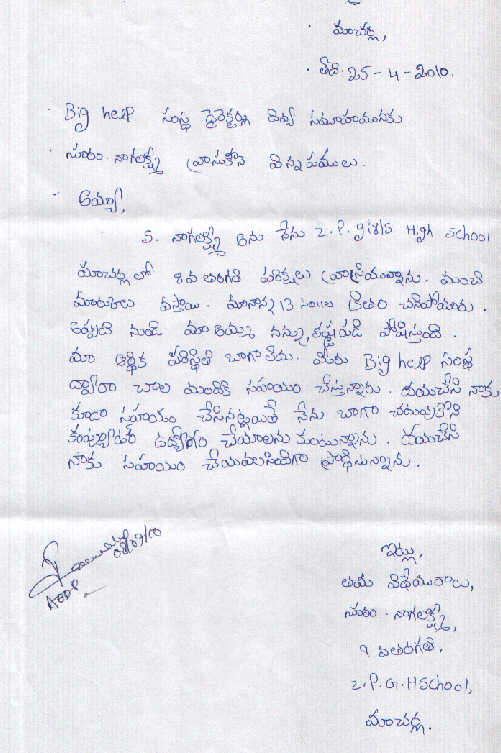 మాచర్ల,
తేది. 25-4-2010.
Big help సంస్థ డైరెక్టర్ల దివ్య సముఖమునకు
సూరం. నాగలక్ష్మి వ్రాసుకొనే విన్నపములు.
అయ్యా!,
S. నాగలక్ష్మి అను నేను Z.P. girls High School
మాచర్ల లో 8వ తరగతి పరీక్షలు వ్రాసియున్నాను. మంచి
మార్కులు వస్తాయి. మా నాన్న 13 సంవ క్రితం చనిపోయారు.
అప్పటి నుండి మా అమ్మ నన్ను కష్టపడి పోషిస్తుంది.
మా ఆర్థిక పరిస్థితి బాగా లేదు. మీరు Big help సంస్థ
ద్వారా చాలా మందికి సహాయం చేస్తున్నారు. దయచేసి నాకు
కూడా సహాయం చేసినట్లయితే నేను బాగా చదువుకొని
కంప్యూటర్ ఉద్యోగం చేయాలనుకుంటున్నాను. దయచేసి
నాకు సహాయం చేయవలసిందిగా ప్రార్థిస్తున్నాను.
ఇట్లు,
తమ విధేయురాలు,
సూరం. నాగలక్ష్మి,
9 వ తరగతి,
Z.P.G.H School,
మాచర్ల.